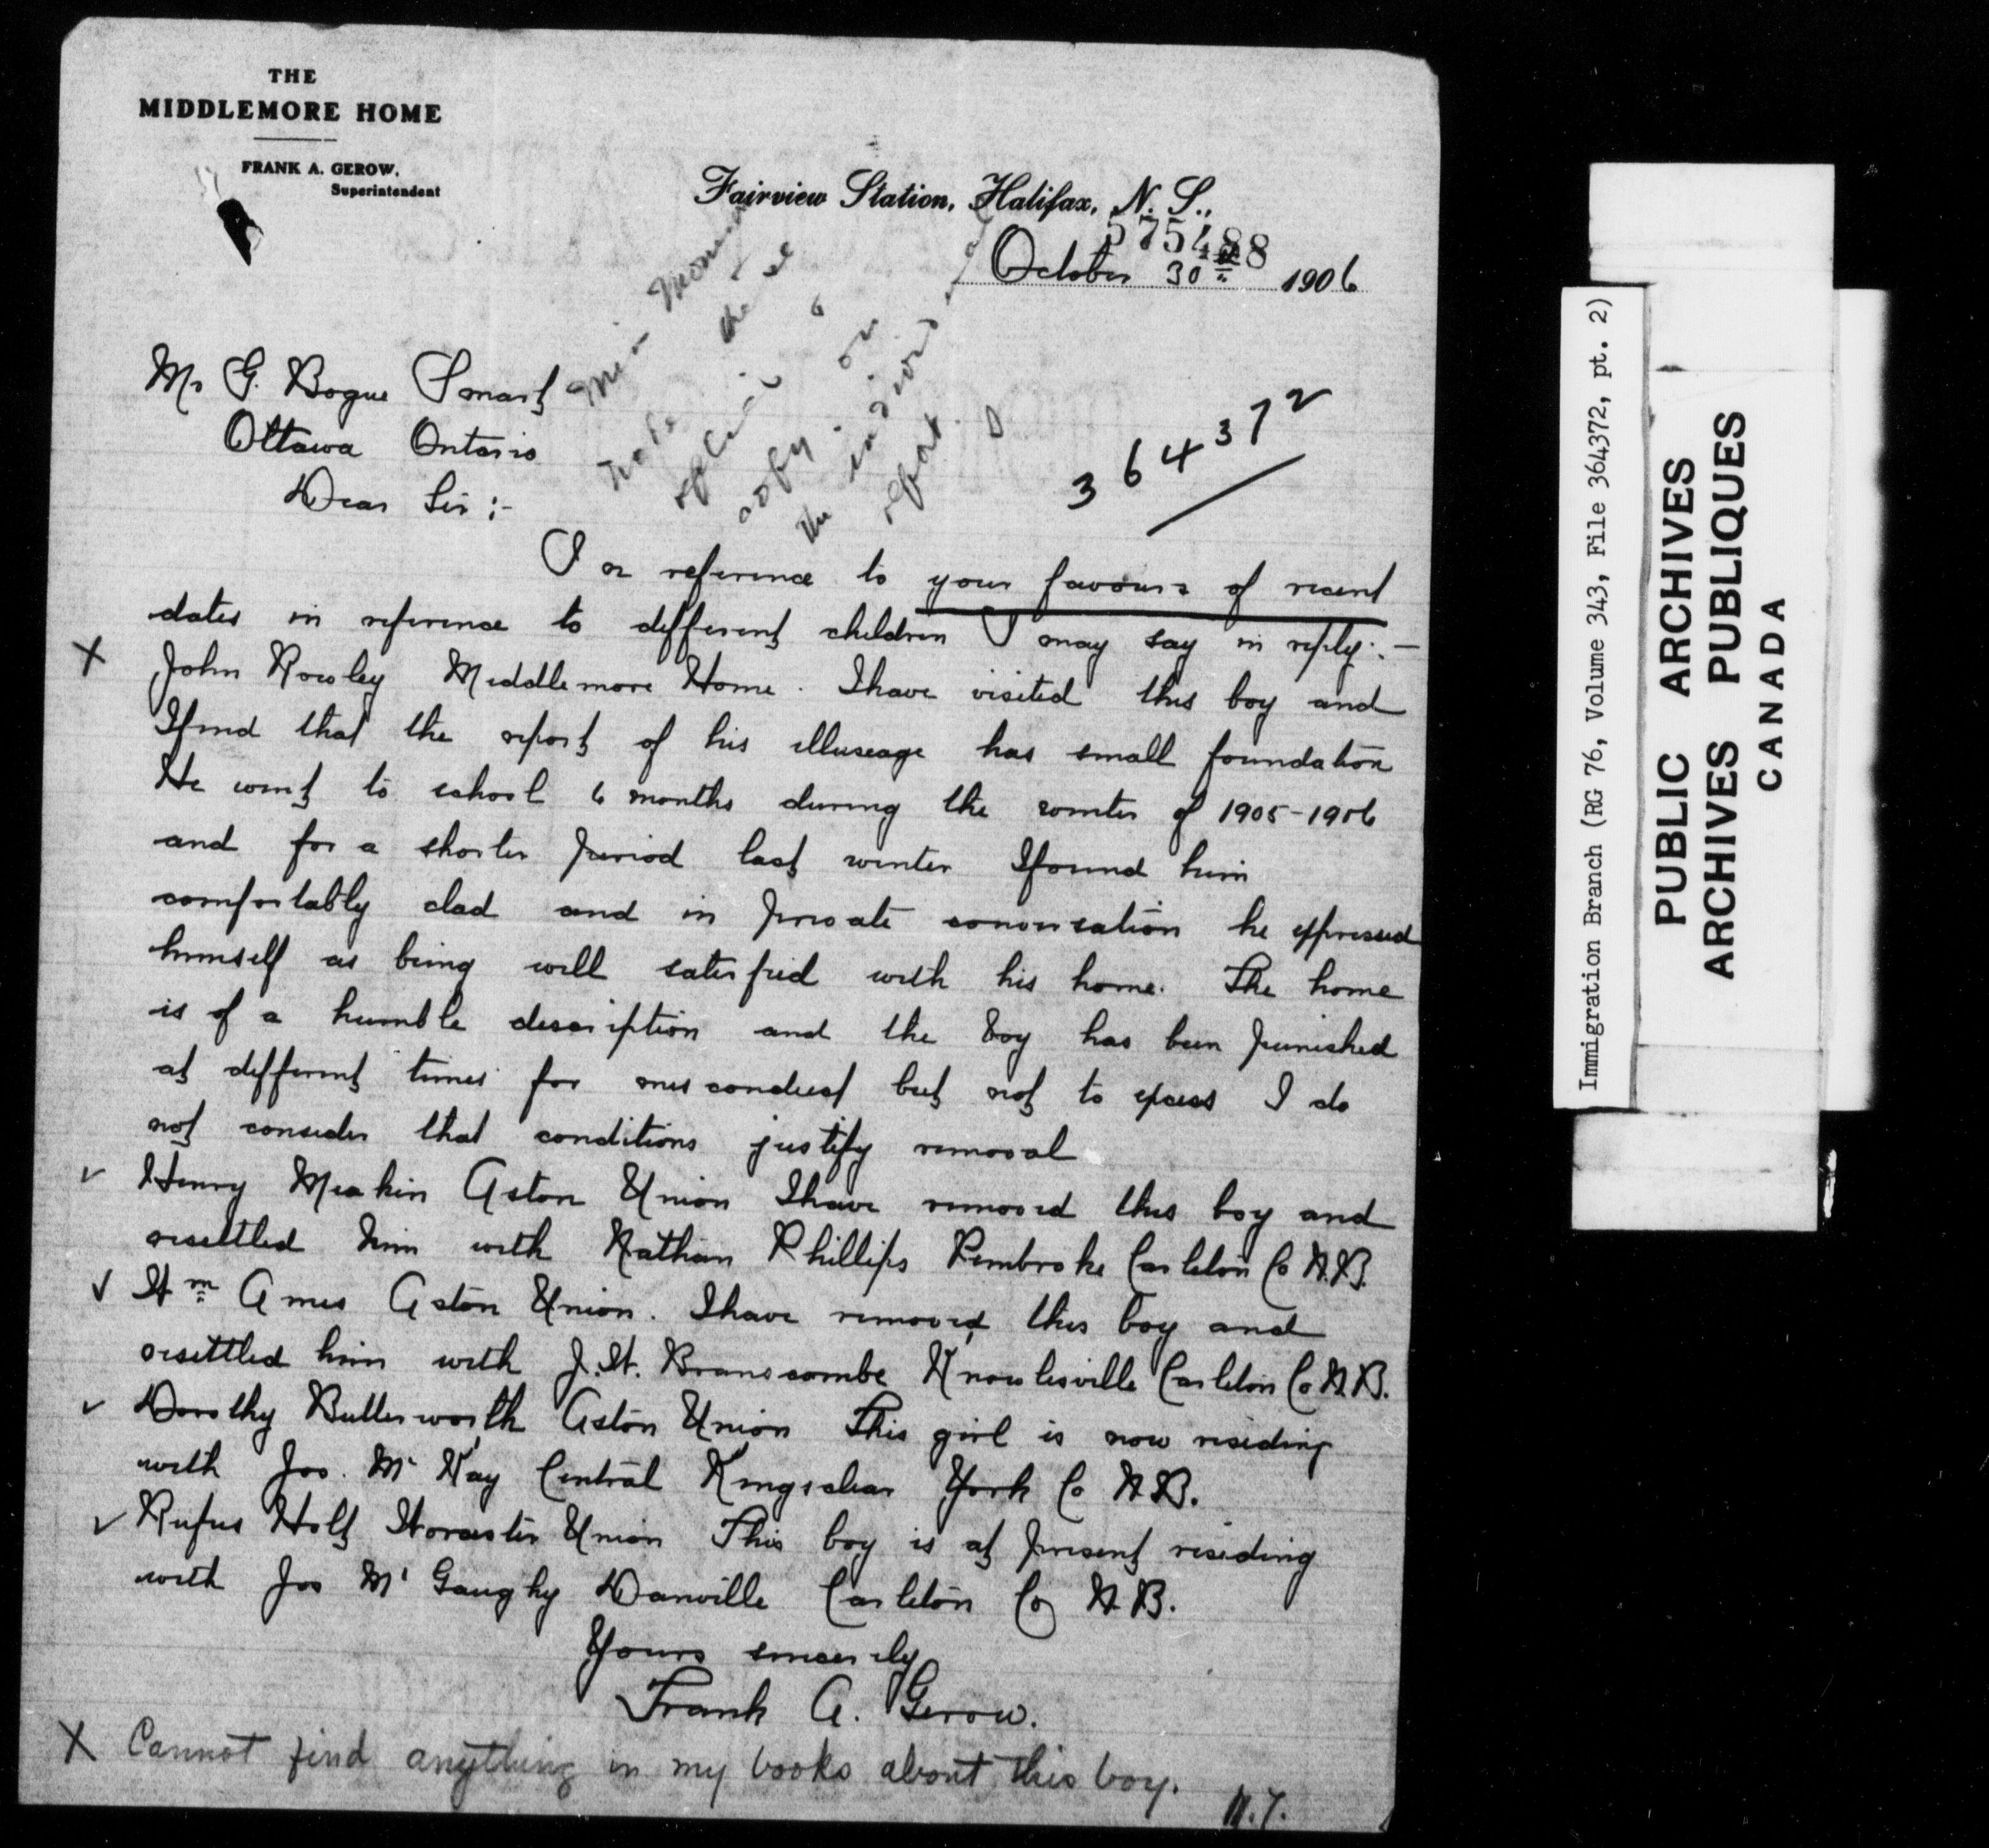 THE
MIDDLEMORE HOME
FRANK A. GEROW.
Superintendent
Fairview Station, Halifax, N. S.,
575488
October 30th 1906
Mr G. Bogue Smart
Ottawa Ontario
Dear Sir :-
Miss
note these
replies &
copy on
the individual
report.
364372
I or reference to your favours of recent
dates in reference to different children I may say in reply:-
X John Rowley Middlemore Home. I have visited this boy and
I find that the report of his illuseage has small foundation
He went to school 6 months during the winter of 1905-1906
and for a shorter period last winter I found him
comfortably clad and in private conversation he expressed
himself as being well satisfied with his home. The home
is of a humble description and the boy has been punished
at different times for misconduct but not to excess I do
not consider that conditions justify removal
✓ Henry Meakin Aston Union I have removed this boy and
resettled him with Nathan Phillips Pembroke Carleton Co N.B.
✓ Wm Ames Aston Union. I have removed this boy and
resettled him with J. W. Branscombe Knowlesville Carleton Co N.B.
✓ Dorothy Butterworth Aston Union This girl is now residing
with Jos. Mc Kay Central Kingsclear York Co N.B.
✓ Rufus Holt Worcester Union This boy is at present residing
with Jos Mc Gaughy Danville Carleton Co N.B.
Yours sincerely
Frank A. Gerow.
X Cannot find anything in my books about this boy.
Immigration Branch (RG 76, Volume 343, File 364372, pt. 2)
PUBLIC ARCHIVES
ARCHIVES PUBLIQUES
CANADA